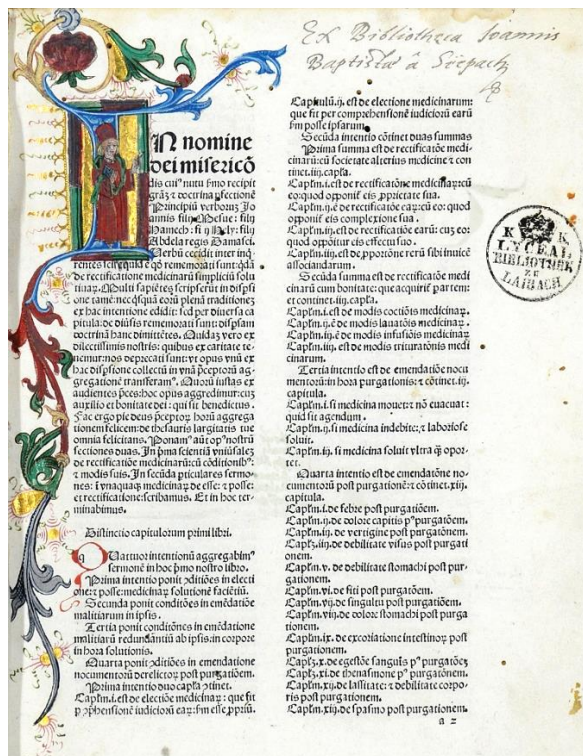 Ex Bibliotheca Joannis
Baptistæ â
IN nomine
dei misericō
dis cui⁹ nutu ẜmo recipit
gr̄az ⁊ doctrina ꝑfectionē
Principiū verboruꝫ Jo
annis filij Mesue: filij
Hamech: fi ij Hely: filij
Abdela regis Damasci.
Verbū cecidit inter inq̄
de rectificatione medicinarū simpliciū solu
tiuaꝝ. Multi sapiētes scripserūt in dispsi
one tamē: nec q̄sqꝫ eorū plenā traditionez
ex hac intentione edidit: sed per diuersa ca
pitula: de diuisis rememorati sunt: dispsam
doctrinā hanc dimittētes. Quidaꝫ vero ex
dilectissimis nostris: quibus ex caritate te-
nemur: nos deprecati sunt: vt opus vnū ex
hac dispsione collectū in vnā p̄ceptorū ag-
gregationē transferam⁹. Quorū iustas ex
audientes p̄ces: hoc opus aggredimur: cuꝫ
auxilio et bonitate dei: qui sit benedictus.
Fac ergo pie deus p̄ceptor̄ horū aggrega
tionem felicem: de thesauris largitatis tue
omnia felicitans. Ponam⁹ aūt op⁹ nostrū
sectiones duas. In p̄ma scientiā vniūsalez
de rectificatiōe medicinarū: cū cōditionib⁹:
⁊ modis suis. In secūda p̄ticulares sermo-
nes: ī vnaquaqꝫ medicinaꝝ de esse: ⁊ posse:
et rectificatione: scribamus. Et in hoc ter-
minabimus.
Distinctio capitulorum primi libri.
Quatuor intentionū aggregabim⁹
sermonē in hoc p̄mo nostro libro.
Prima intentio ponit ꝯditiōes in electi
one: ⁊ posse: medicinaꝝ solutionē faciētiū.
Secunda ponit conditiōes in emēdatiōe
malitiarum in ipsis.
Tertia ponit conditōnes in emēdatione
malitiarū redundātiū ab ipsis: in corpore
in hora solutionis.
Quarta ponit ꝯditiōes in emendatione
nocumentorū derelictoꝝ post purgatiōem.
Prima intentio duo capl̄a ꝯtinet.
Capl̄m.i. est de electiōe medicinaꝝ: que fit
p ꝯprehensionē iudicioꝝ earū: ẜm esse ꝓpriū.
Capitulū.ij. est de electione medicinarum:
que fit per comprehensionē iudiciorū earū
ẜm posse ipsarum.
Secūda intentio cōtinet duas summas
Prima summa est de rectificatōe medi-
cinarū: cū societate alterius medicine ⁊ con
tinet.iiij.capl̄a.
Capl̄m.i. est de rectificatōne medicinaꝝ: cū
eo: quod opponit eis ꝓprietate sua.
Capl̄m.ij. ē de rectificatiōe earū: cū eo: quod
opponit̄ eis complexione sua.
Capl̄m.iij. est de rectificatiōe earū: cuꝫ eo:
quod opponitur eis effectu suo.
Capl̄m.iiij. est de ꝓportiōne rerū sibi inuicē
associandarum.
Secūda summa est de rectificatōe medi
cinarū cum bonitate: que acquirit̄ par tem:
et continet.iiij. capl̄a.
Capl̄m.i. est de modis coctiōis medicinaꝝ.
Capl̄m.ij. ē de modis lauatōis medicinaꝝ.
Capl̄m.iij. ē de modis infusiōis medicinaꝝ
Capl̄m.iiij. est de modis trituratōnis medi
cinarum.
Tertia intentio est de emendatōne nocu
mentorū: in hora purgationis: ⁊ cōtinet.ij.
capitula.
Capl̄m.i. si medicina mouet: ⁊ nō euacuat:
quid sit agendum.
Capl̄m.ij. si medicina indebite: ⁊ laboriose
soluit.
Capl̄m.iij. si medicina soluit vltra q̄ opor-
tet.
Quarta intentio est de emendatōne no-
cumentorū post purgationē: ⁊ cōtinet.xiij.
capitula.
Capl̄m.i. de febre post purgatiōem.
Capl̄m.ij. de dolore capitis p⁹ purgatōem.
Capl̄ꝫ.iij. de vertigine post purgatiōem.
Capl̄ꝫ.iiij. de debilitate visus post purgati
onem.
Capl̄m.v. de debilitate stomachi post pur-
gationem.
Capl̄m.vi. de siti post purgatōem.
Capl̄m.vij. de singultu post purgatiōem.
Capl̄m.viij. de dolore stomachi post purga
tionem.
Capl̄m.ix. de excoriatione intestinoꝝ post
purgationem.
Capl̄ꝫ.x. de egestōe sanguīs p⁹ purgatōeꝫ
Capl̄m.xi. de thenasmone p⁹ purgatōem.
Capl̄m.xij. de lassitate: ⁊ debilitate corpo-
ris post purgationem.
Capl̄m.xiij. de spasmo post purgationem.
a 2
K K
LYCEAL
BIBLIOTHEK
ZU
LAIBACH